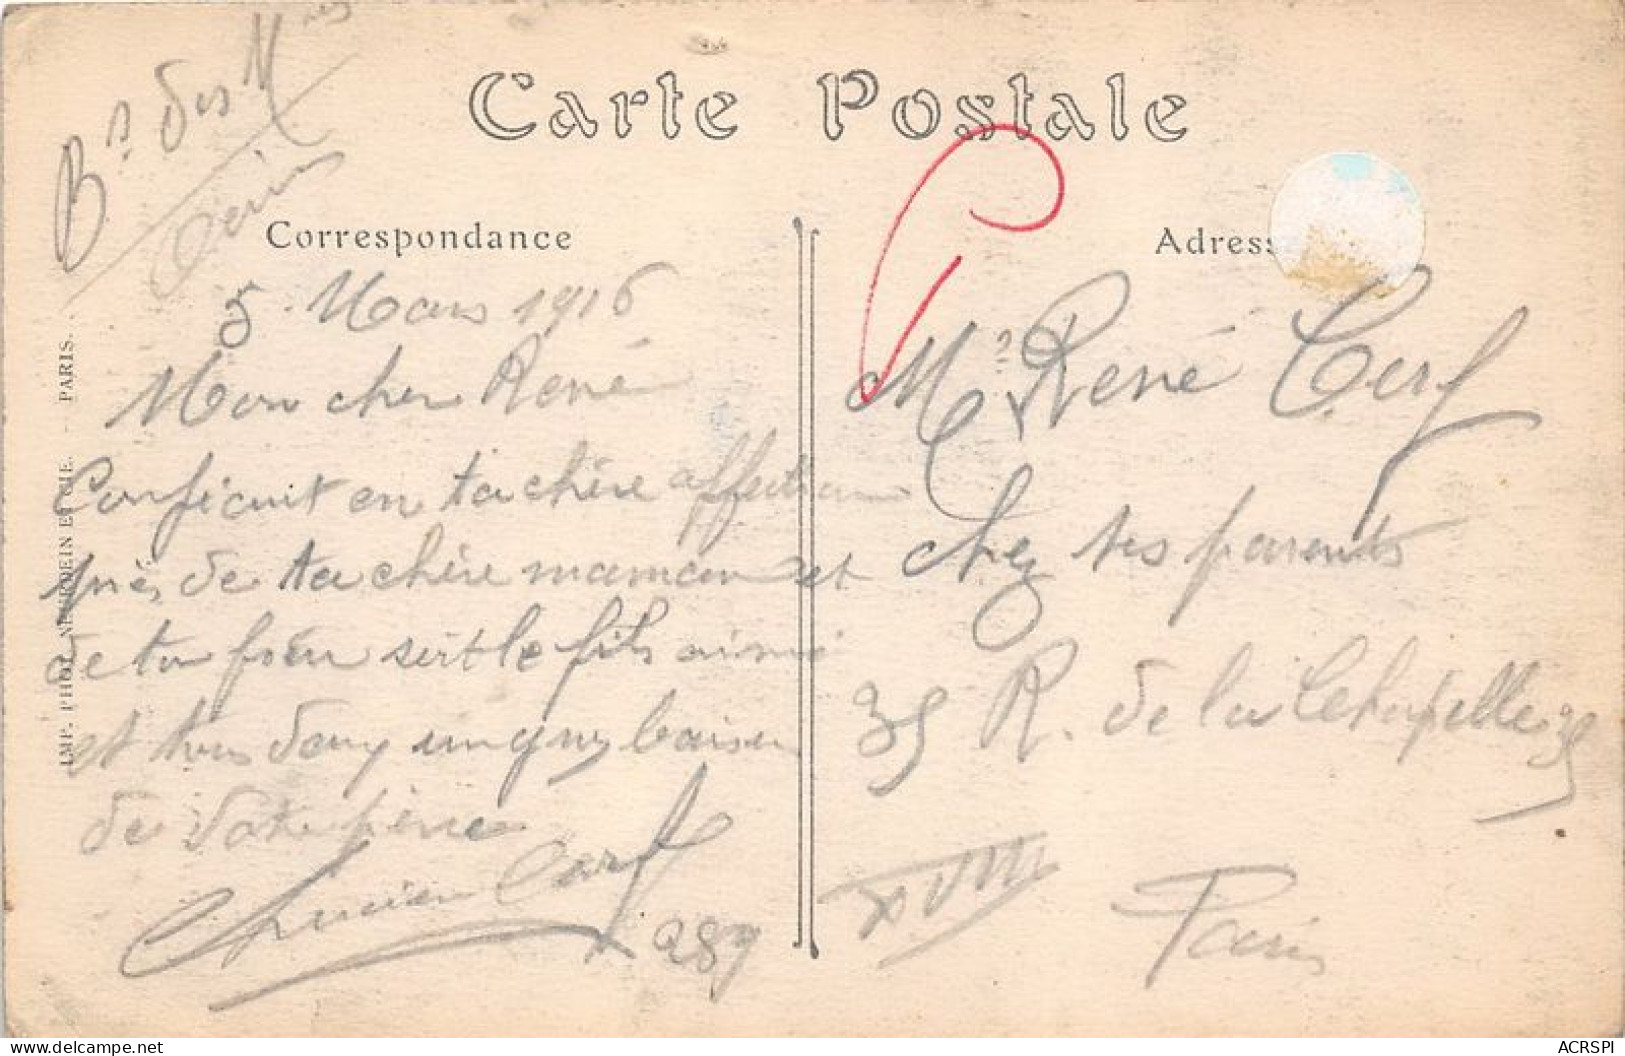 Carte Postale
Correspondance
Adresse
IMP. PHOT. NEURDEIN ET CIE. - PARIS.
Bd des Mnes
Paris
5 Mars 1916
Mon cher René
Confiant en ta chère affection
près de ta chère maman et
de ton frère soit le fils aimé
et tous deux un gros baiser
de votre père
Lucien Cerf
289
Mr René Cerf
chez ses parents
35 R. de la Chapelle 35
XVIII
Paris
ACRSPI
www.delcampe.net